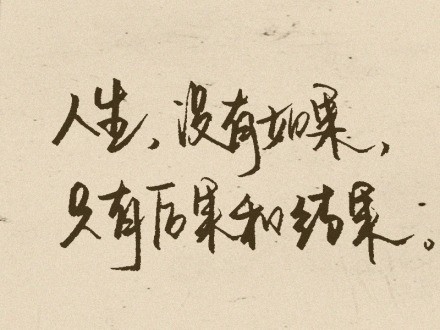 人生,没有如果,
只有后果和结果。